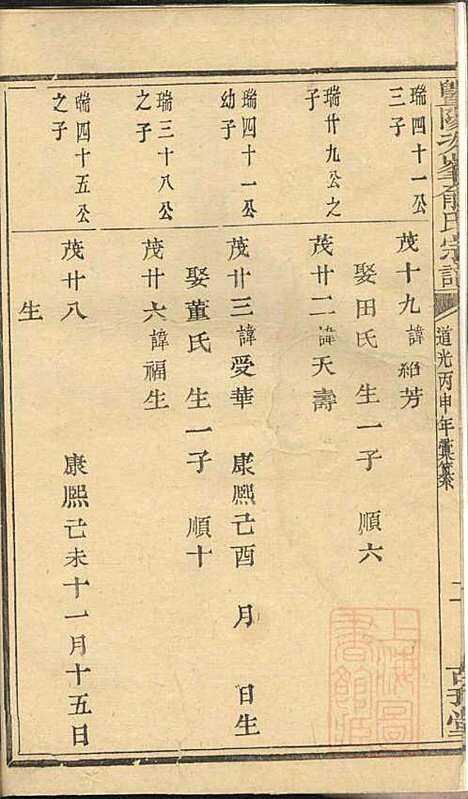 暨陽次峯俞氏宗譜
道光丙申年彙纂
二
瑞四十一公
三子
茂十九諱紹芳
娶田氏 生一子 順六
瑞廿九公之
子
茂廿二諱天壽
瑞四十一公
幼子
茂廿三諱受華 康熙己酉 月 日生
娶董氏 生一子 順十
瑞三十八公
之子
茂廿六諱福生
瑞四十五公
之子
茂廿八 康熙己未十一月十五日
生
上海圖書館藏